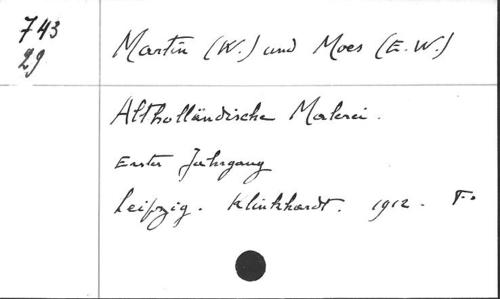 743
29
Martin (W.) und Moes (E.W.)
Altholländische Malerei.
Erster Jahrgang
Leipzig. Klinkhardt. 1912. F.